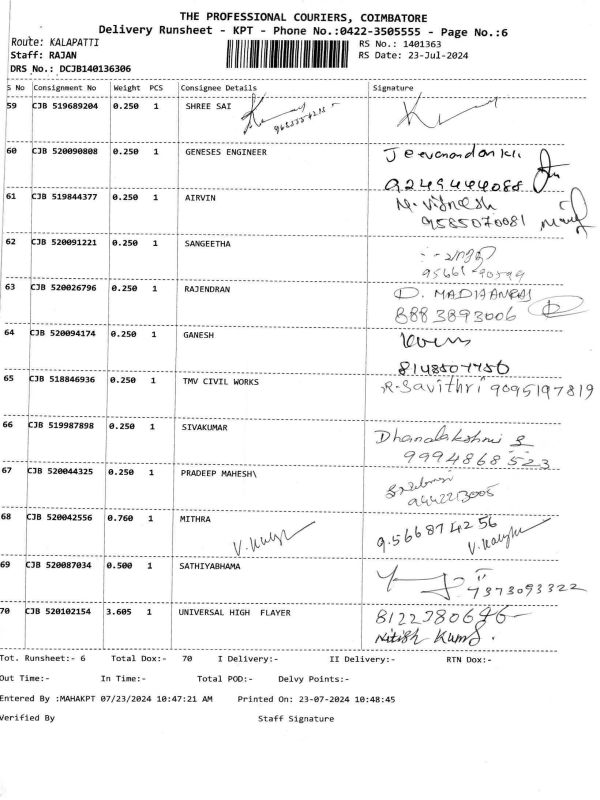 THE PROFESSIONAL COURIERS, COIMBATORE
Delivery Runsheet - KPT - Phone No.:0422-3505555 - Page No.:6
Route: KALAPATTI RS No.: 1401363
Staff: RAJAN RS Date: 23-Jul-2024
DRS No.: DCJB140136306
S No Consignment No Weight PCS Consignee Details Signature
59 CJB 519689204 0.250 1 SHREE SAI
60 CJB 520090808 0.250 1 GENESES ENGINEER
9249444088
61 CJB 519844377 0.250 1 AIRVIN M. Vignesh
9585070081
62 CJB 520091221 0.250 1 SANGEETHA
63 CJB 520026796 0.250 1 RAJENDRAN
8883893006
64 CJB 520094174 0.250 1 GANESH
65 CJB 518846936 0.250 1 TMV CIVIL WORKS R. Savithri 9095197819
66 CJB 519987898 0.250 1 SIVAKUMAR Dhanalakshmi S
9994868523
67 CJB 520044325 0.250 1 PRADEEP MAHESH\
68 CJB 520042556 0.760 1 MITHRA 9566874256
69 CJB 520087034 0.500 1 SATHIYABHAMA
7373093322
70 CJB 520102154 3.605 1 UNIVERSAL HIGH FLAYER
Nitish Kumar.
Tot. Runsheet:- 6 Total Dox:- 70 I Delivery:- II Delivery:- RTN Dox:-
Out Time:- In Time:- Total POD:- Delvy Points:-
Entered By :MAHAKPT 07/23/2024 10:47:21 AM Printed On: 23-07-2024 10:48:45
Verified By Staff Signature